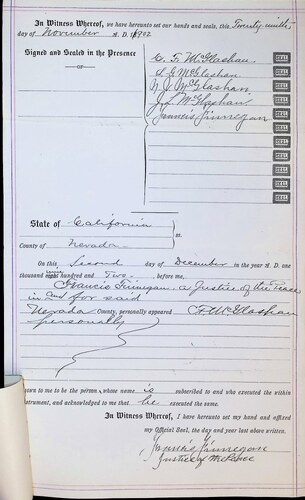 In Witness Whereof, we have hereunto set our hands and seals, this Twenty ninth
day of November A. D. 1902
Signed and Sealed in the Presence
—OF—
C. F. McGlashan SEAL
SEAL
N. J. McGlashan SEAL
McGlashan SEAL
Francis Finnegan SEAL
SEAL
SEAL
SEAL
State of California
ss.
County of Nevada
On this Second day of December in the year A. D. one
thousand nine hundred and Two before me,
Francis Finnegan, a Justice of the Peace
in and for said
Nevada County, personally appeared C F McGlashan
personally
own to me to be the person whose name is subscribed to and who executed the within
instrument, and acknowledged to me that he executed the same.
In Witness Whereof, I have hereunto set my hand and affixed
my Official Seal, the day and year last above written.
Francis Finnegan
Justice of the Peace